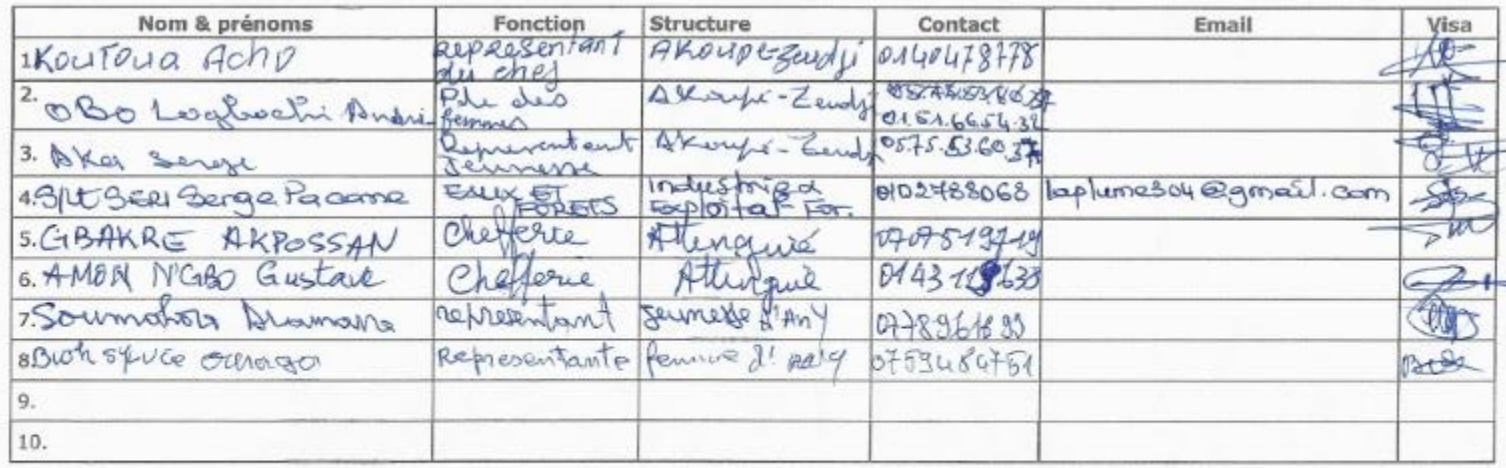 Nom & prénoms Fonction Structure Contact Email Visa
1 KOUTOUA ACHO Representant du chef AKoupé-Zeudji 0140478778
2. OBO André Pdte des femmes Akoupé-Zeudji 01.51.66.54.32
3. AKa Serge Representant Jeunesse Akoupé-Zeudji 0575.53.60.37
4. S/Lt SERI Serge Pacome EAUX ET FORETS Industrie & Exploitat° For. 0102788068 laplume304@gmail.com
5. GBAKRE AKPOSSAN Chefferie Attinguié 0707519719
6. AMON N'GBO Gustave Chefferie Attinguié
7. Soumahoro Dramane representant jeunesse d'Any
8 Representante femme d'
9.
10.